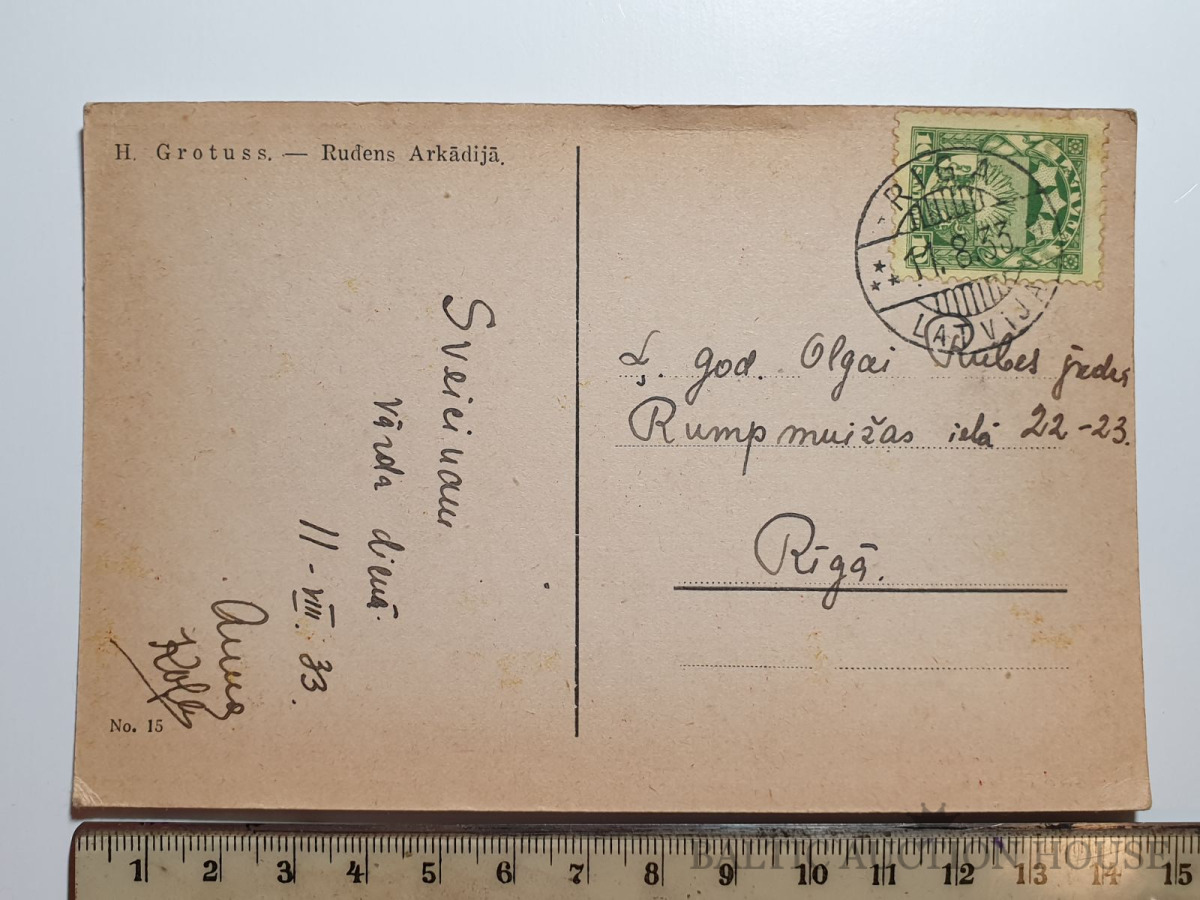 H. Grotuss. — Rudens Arkādijā.
LATVIJA
RIGA
11.8.33
LATVIJA
Sveicinam
vārda dienā.
11-VIII. 33.
Anna
No. 15
Ļ. god. Olgai Rubes jkdz
Rumpmuižas ielā 22-23.
Rīgā.
1 2 3 4 5 6 7 8 9 10 11 12 13 14 15
BALTIC AUCTION HOUSE